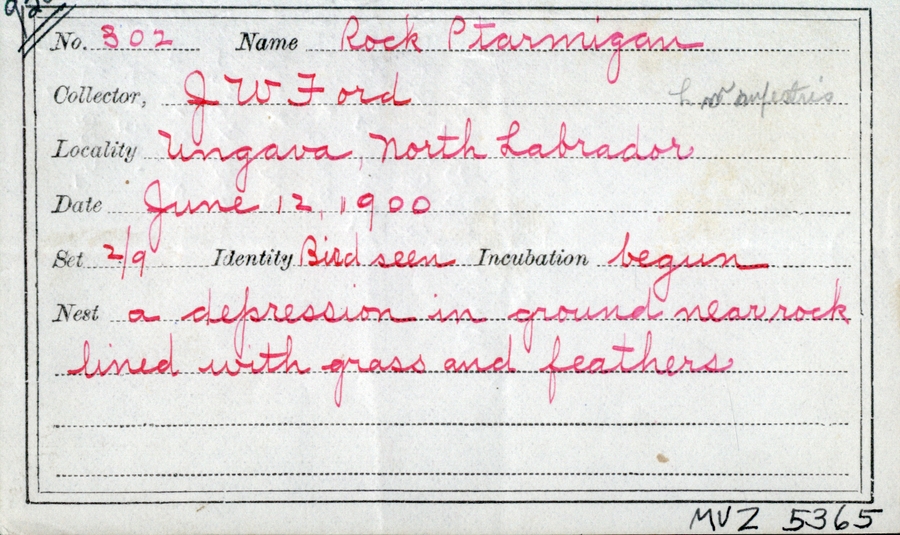 No. 302 Name Rock Ptarmigan
Collector, J W Ford
L r rupestris
Locality Ungava, North Labrador
Date June 12, 1900
Set 2/9 Identity Bird seen Incubation begun
Nest a depression in ground near rock
lined with grass and feathers
MVZ 5365